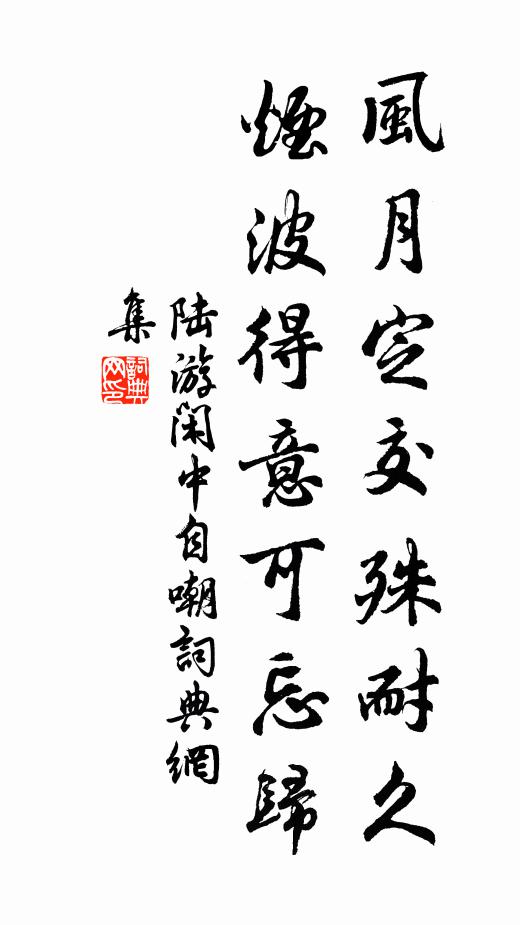 風月定交殊耐久
煙波得意可忘歸
陆游闲中自嘲詞典網
集
詞典
网印